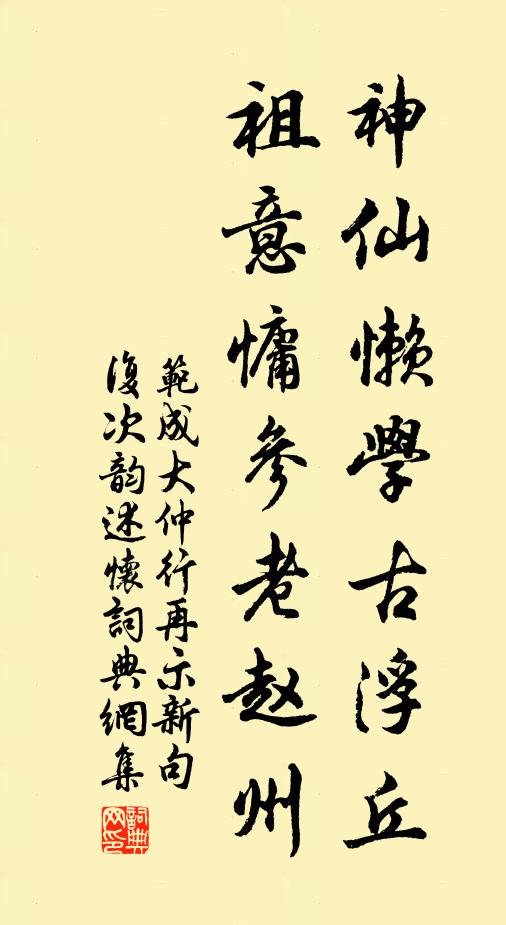 神仙懶學古浮丘
祖意慵參老赵州
範成大仲行再示新句
復次韵述懷詞典網集
詞典网印